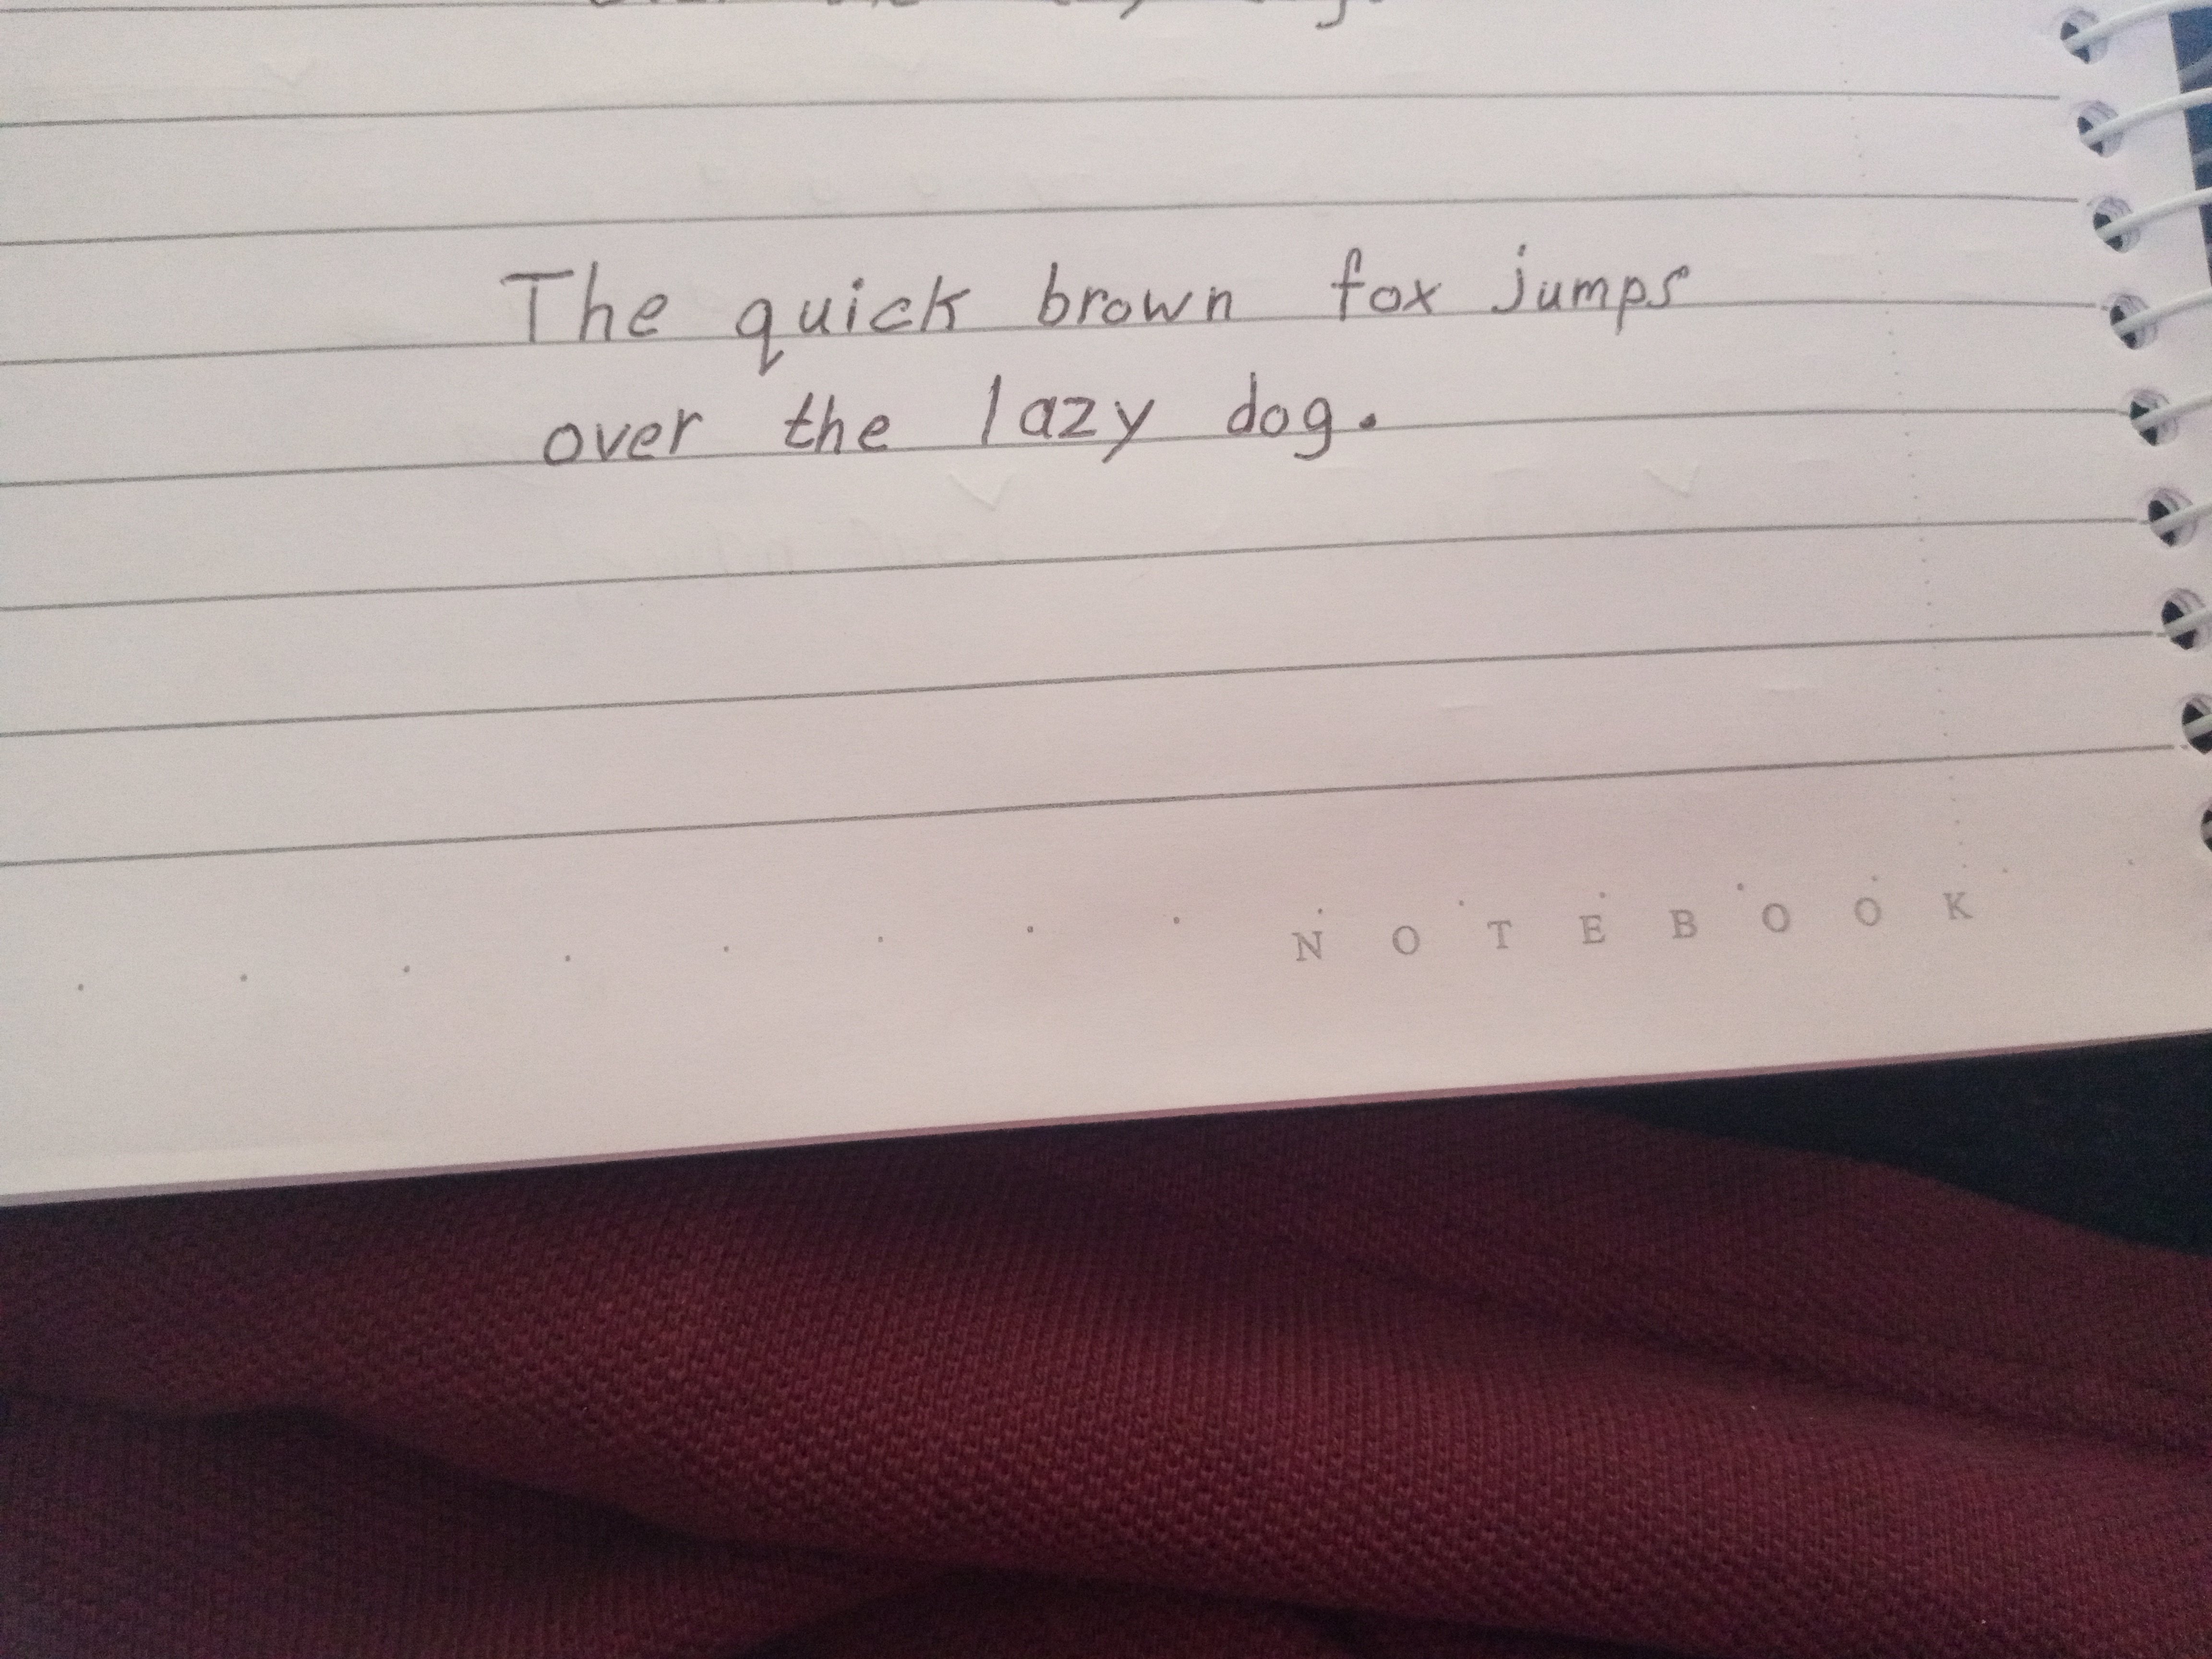 The quick brown fox jumps
over the lazy dog.
NOTEBOOK